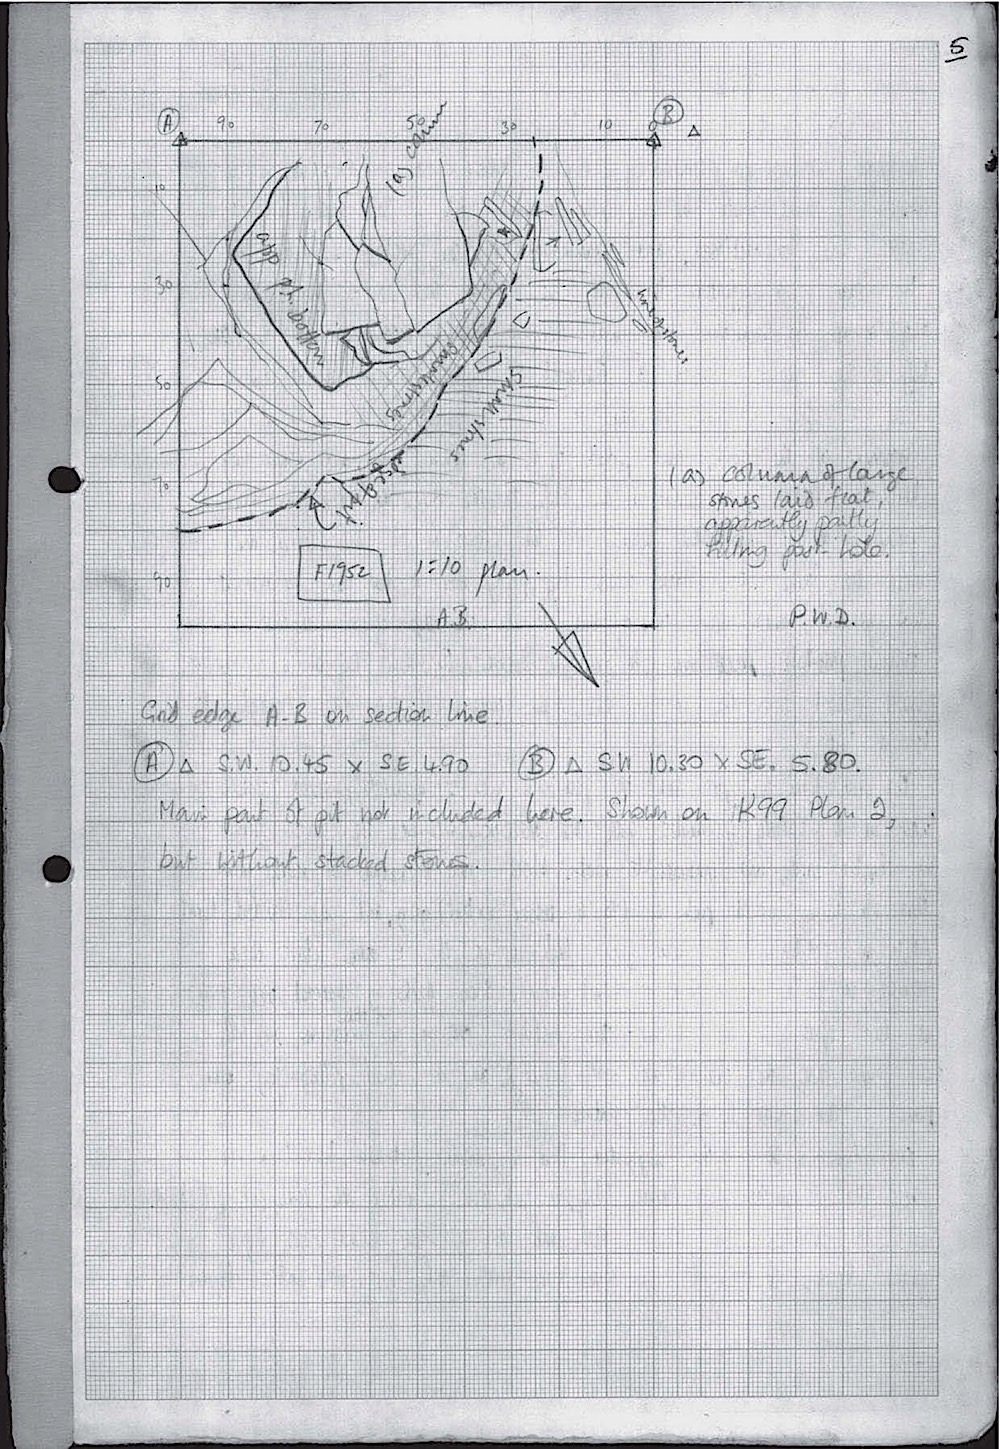 5
A B
90 70 50 30 10 0
10
30
50
70
90
(a) column
app p.h. bottom
small stones
small stones
(a) column of large
stones laid flat,
apparently partly
filling post-hole.
F1952 1:10 plan.
A.B.
P.W.D.
Grid edge A-B on section line.
A Δ S.W. 10.45 x SE 4.90 B Δ SW 10.30 x SE. 5.80.
Main part of pit not included here. Shown on K99 Plan 2,
but without stacked stones.